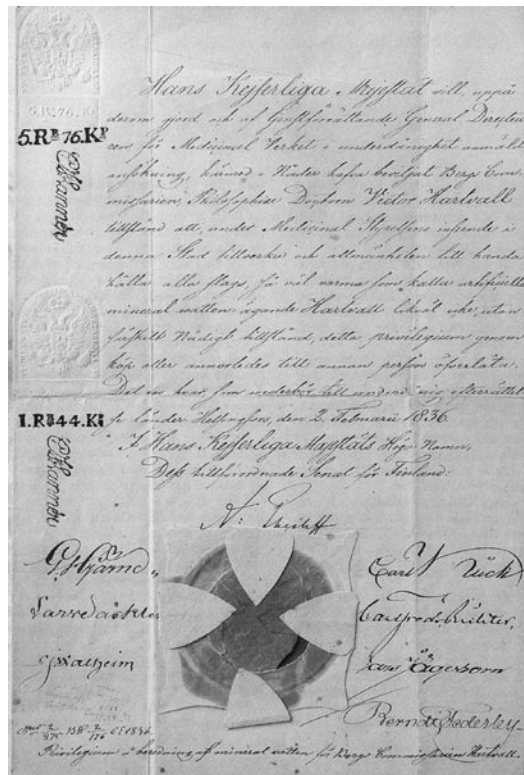 5.R. 76.K.
5.R.B 76.K.P
Hans Kejserliga Majestät vill, uppå
derom gjord och af Tjenstförrättande General Direkteu
ren för Medicinal Verket i underdånighet anmäld
ansökning, härmed i Nåder hafva beviljat Bergs Com
missarien, Philosophiæ Doktorn Victor Hartwall
tillstånd att, under Medicinal Styrelsens inseende i
denna Stad tillverka och allmänheten till handa
hålla alla slags, så väl varma som kalla artificiella
mineral vatten, ägande Hartwall likväl icke, utan
särskilt Nådigt tillstånd, detta privilegium genom
köp eller annorledes till annan person öfverlåta.
Det en hvar, som vederbör till underdånig efterrättel
se länder. Helsingfors, den 2. Februarii 1836.
1.R.B 44.K.P
I Hans Kejserliga Majestäts Höga Namn,
Dess tillförordnade Senat för Finland:
G. Hjärne
Carl
C J Walheim
Hans Jägerhorn
Berndt Federley
Privilegium å beredning af mineral vatten för Bergs Commissarien Hartwall.